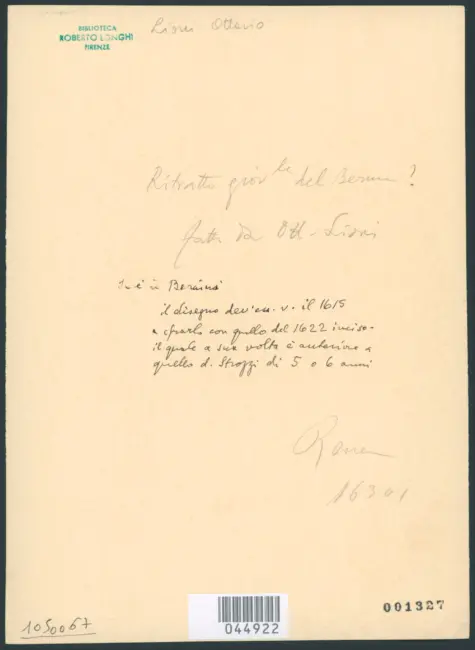 BIBLIOTECA
ROBERTO LONGHI
FIRENZE
Lioni Ottavio
Ritratto giov.le del Bernini?
fatto da Ott. Lioni
Se è il Bernini
il disegno dev'ess. v. il 1615
a
con quello del 1622 inciso.
il quale a sua volta è anteriore a
quello d. Strozzi di 5 o 6 anni
Roma
1630
1050067
044922
001327